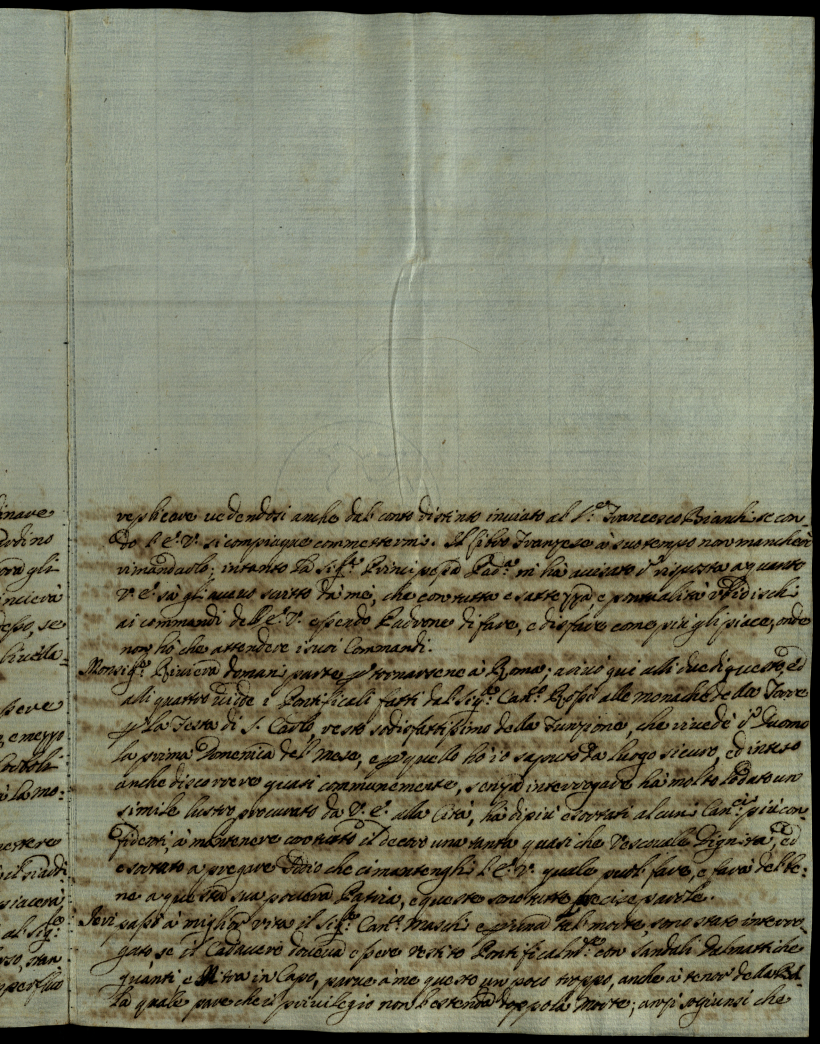 inave
ardino
ora gli
incierà
esso, se
livella-
e mezzo
à la mo:
mettere
piacerà
al Sig.re
rso, stan
superfluo
replicare vedendosi anche dal conto distinto inviato al S.r Francesco Bianchi se con-
do l'E.V. si compiacque commettermi. Il filo Franzese à suo tempo non mancherò
rimandarlo; intanto la Sig.ra Principessa Pad.na m'hà avvisato in risposta a quanto
V.E. sà gli avevo scritto da mè, che con tutta esattezza e pontualità ubidischi
ai commandi dell'E.V. essendo Padrone di fare, e disfare come più gli piace, onde
non hò che attendere i suoi Commandi.
Monsig.re Riviera domani parte per tornarsene à Roma; arrivò qui alli due di questo, ed
alli quattro vidde i Pontificali fatti dal Sig.r Can.co Rossi alle monache della Torre
per la Festa di S. Carlo, restò sodisfattissimo della Funzione, che vide in Duomo
la prima Domenica del Mese, e per quello hò io saputo da luogo sicuro, ed inteso
anche discorrere quasi communemente, senza interrogare hà molto lodato un
simile lustro procurato da V.E. alla Città, hà di più esortati alcuni Can.ci più con-
fidenti, à mantenere con tratto il decoro una tanta quasi che Vescovale Dignità, ed
esortato a pregare Iddio che ci mantenghi l'E.V. quale puol fare, e farà del be-
ne a questa sua povera Patria, e queste sono tutte precise parole.
Ieri passò à miglior vita il Sig.r Can.co Maschi e prima tal morte, sono stato interro-
gato, se il Cadavere doveva essere vestito Pontificalm.te con Sandali Dalmatiche
guanti, e Mitra in Capo, parve à me questo un poco troppo, anche à tenor della Bol-
la quale pare che il privilegio non l'estenda doppo la Morte; anzi sogiunsi che